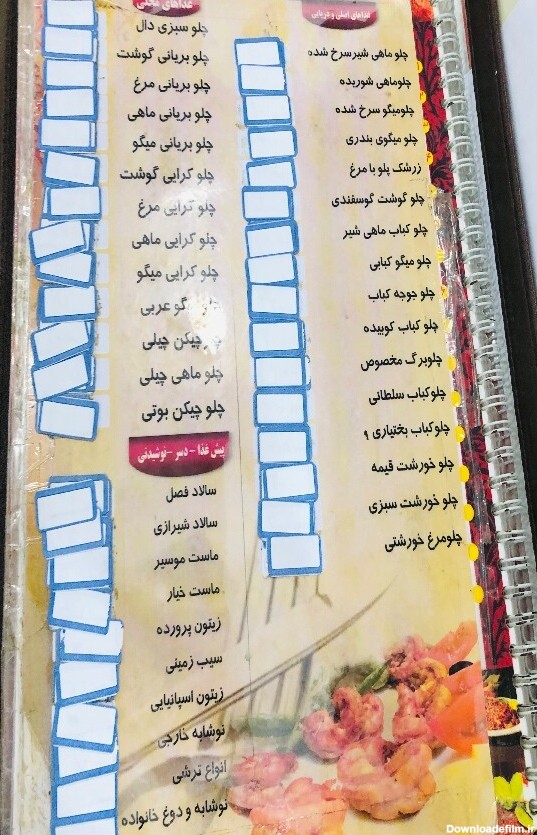 غذاهای اصلی و دریایی
چلو ماهی شیر سرخ شده
چلوماهی شوریده
چلومیگو سرخ شده
چلو میگوی بندری
زرشک پلو با مرغ
چلو گوشت گوسفندی
چلو کباب ماهی شیر
چلو میگو کبابی
چلو جوجه کباب
چلو کباب کوبیده
چلوبرگ مخصوص
چلوکباب سلطانی
چلوکباب بختیاری ۹
چلو خورشت قیمه
چلو خورشت سبزی
چلومرغ خورشتی
غذاهای محلی
چلو سبزی دال
چلو بریانی گوشت
چلو بریانی مرغ
چلو بریانی ماهی
چلو بریانی میگو
چلو کرایی گوشت
چلو کرایی مرغ
چلو کرایی ماهی
چلو کرایی میگو
عربی
چیکن چیلی
چلو ماهی چیلی
چلو چیکن بوتی
پیش غذا - دسر - نوشیدنی
سالاد فصل
سالاد شیرازی
ماست موسیر
ماست خیار
زیتون پرورده
سیب زمینی
زیتون اسپانیایی
نوشابه خارجی
انواع ترشی
نوشابه و دوغ خانواده
Downloadefilm.ir